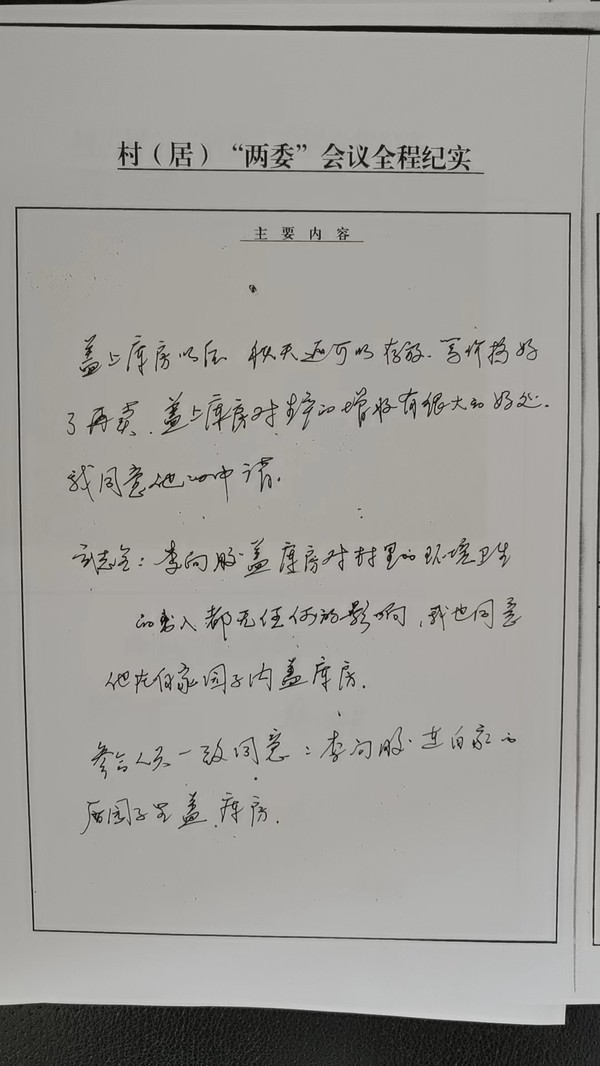 村（居）“两委”会议全程纪实
主要内容
盖上库房以后 秋天还可以存放. 等价格好
了再卖. 盖上库房对生产的增收有很大的好处.
我同意他的申请.
李向胜盖库房对村里的环境卫生
的出入都无任何的影响, 我也同意
他在自家园子内盖库房.
参会人员一致同意: 李向胜 在自家的
后园子里盖库房.